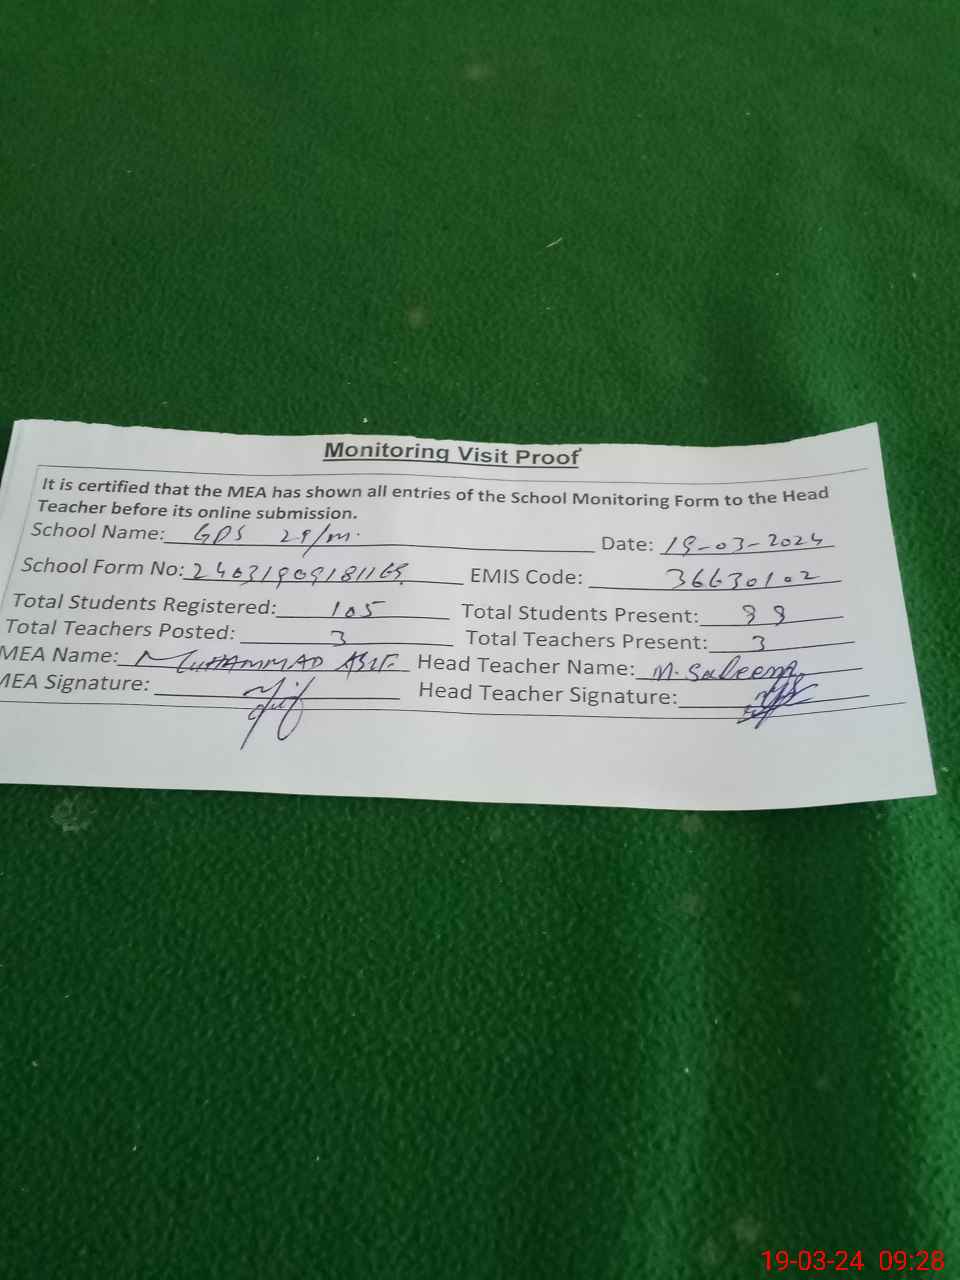 Monitoring Visit Proof
It is certified that the MEA has shown all entries of the School Monitoring Form to the Head
Teacher before its online submission.
School Name: GPS 29/m. Date: 19-03-2024
School Form No: EMIS Code: 36630102
Total Students Registered: 105 Total Students Present:
Total Teachers Posted: 3 Total Teachers Present: 3
MEA Name: MUHAMMAD ASIF Head Teacher Name: M. Saleem
MEA Signature: Head Teacher Signature:
19-03-24 09:28